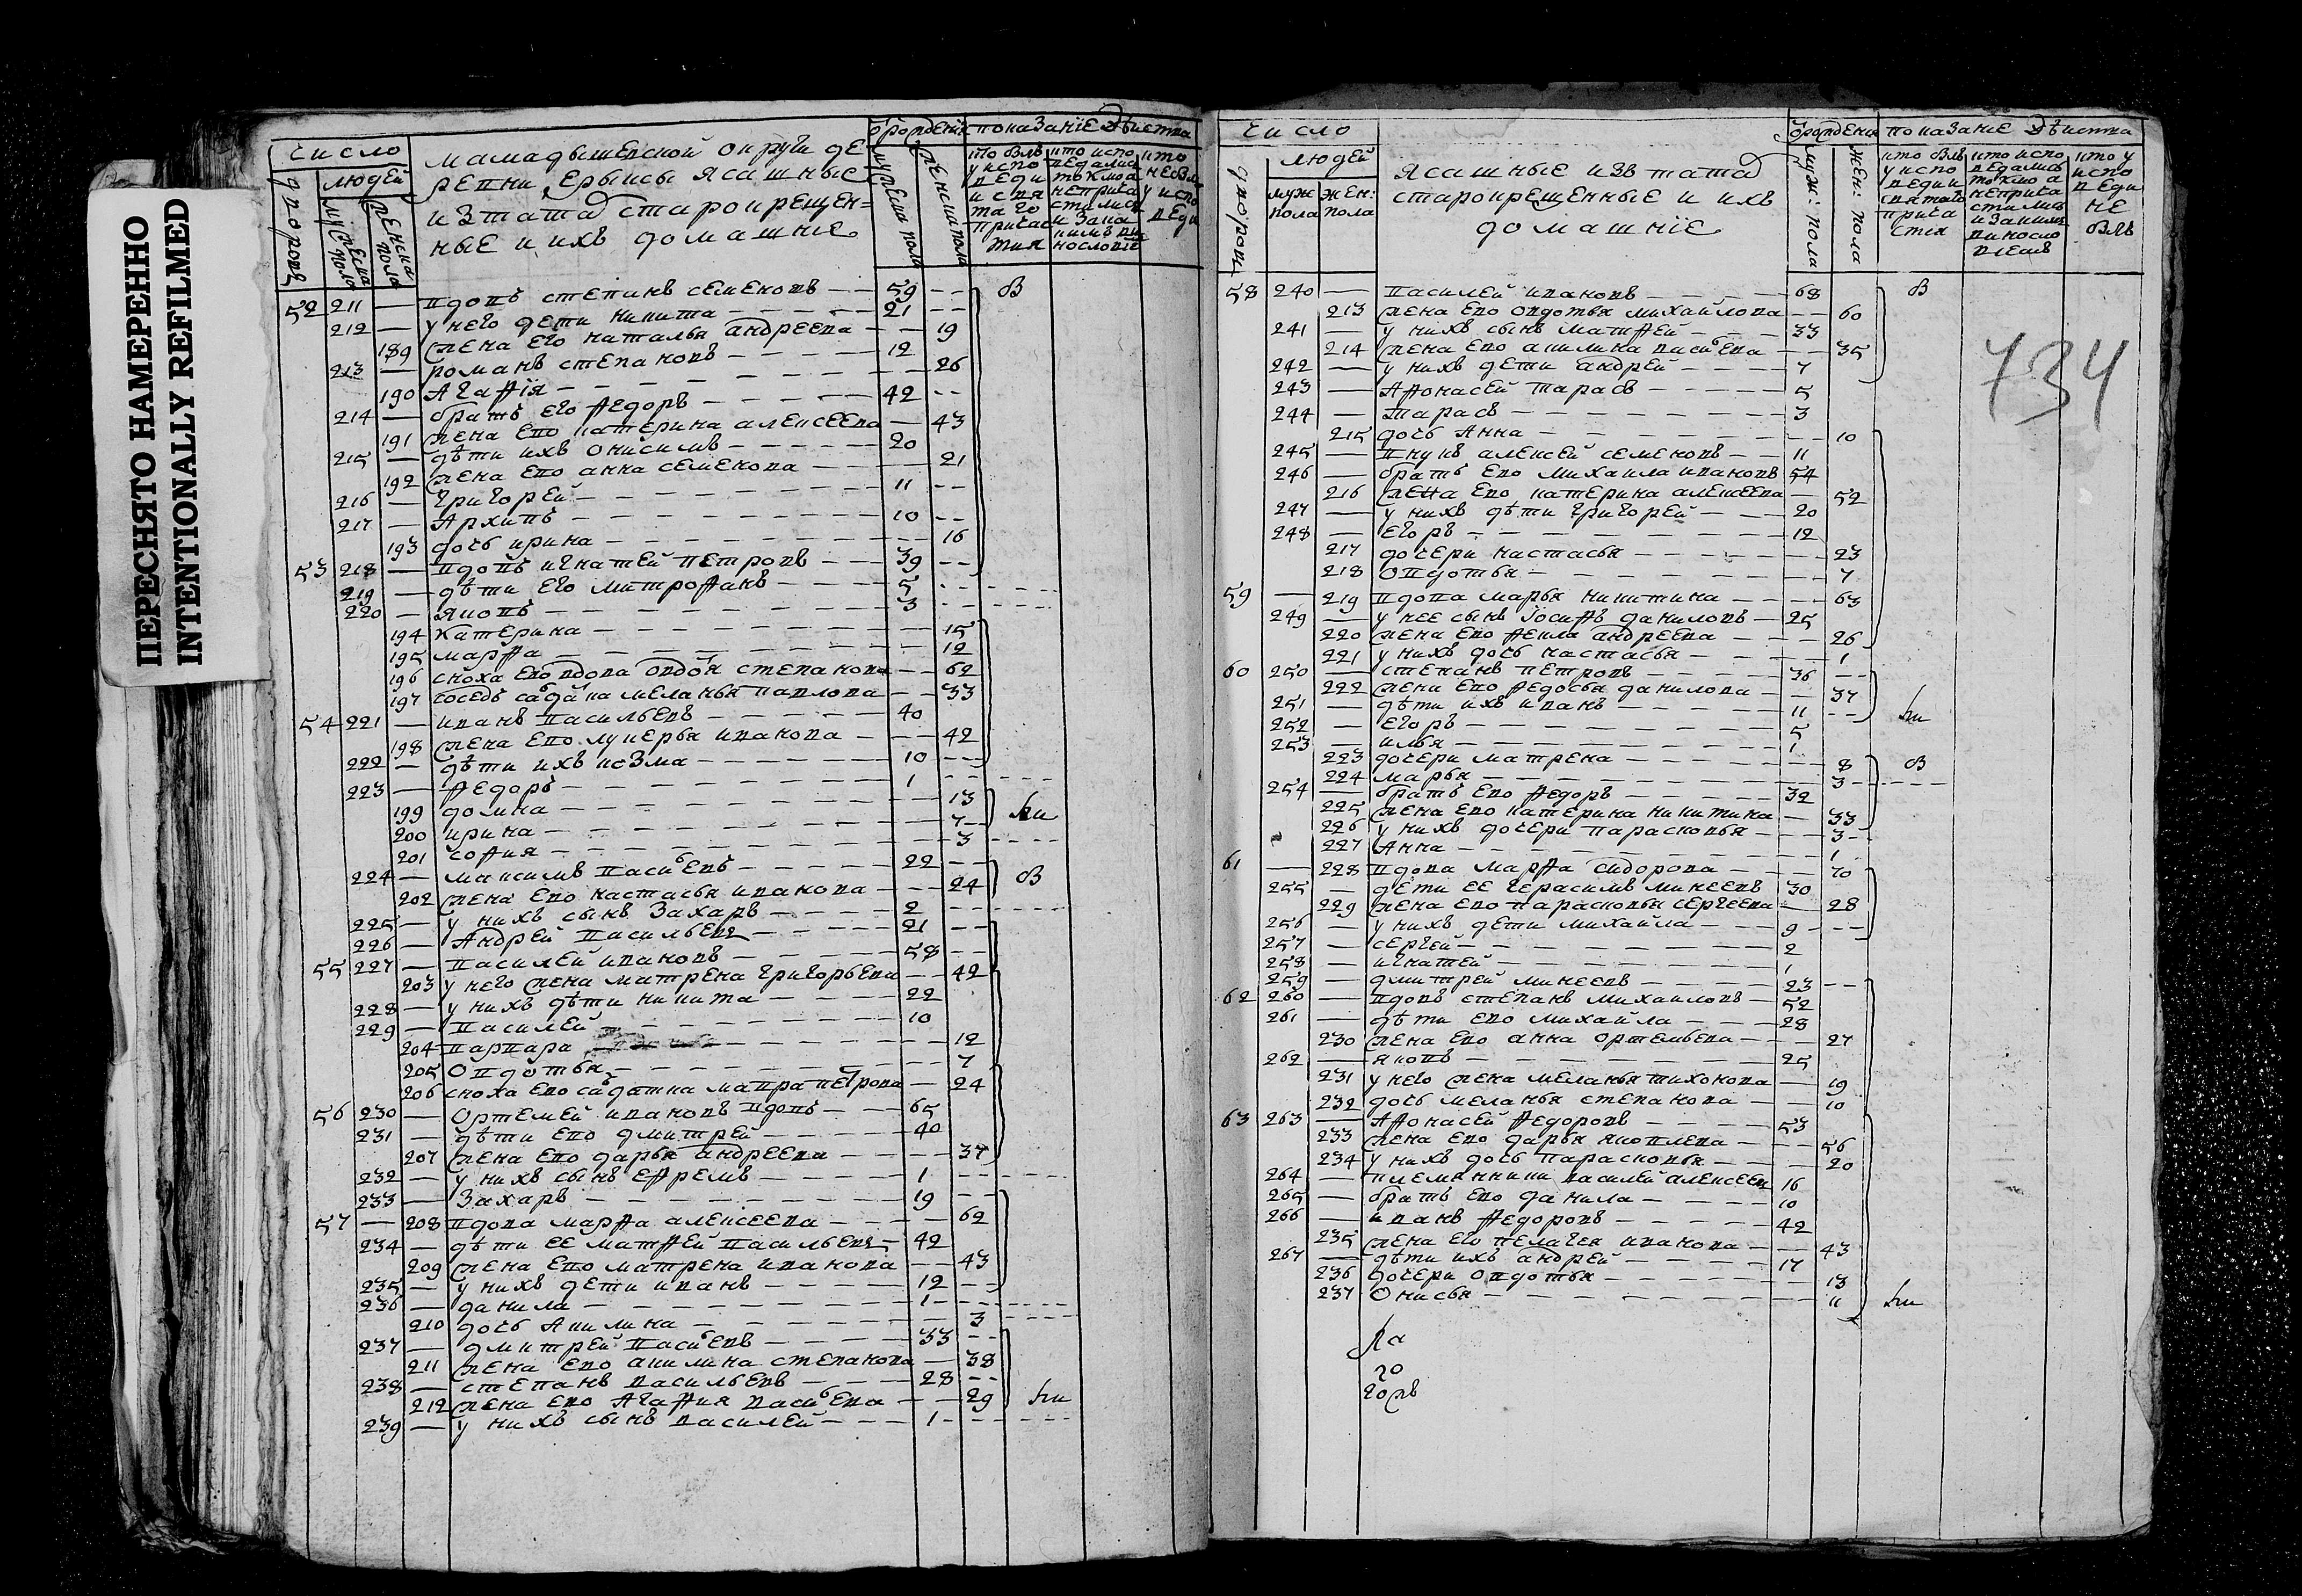 ПЕРЕСНЯТО НАМЕРЕННО
INTENTIONALLY REFILMED
число
людей
дворовъ
мужеска пола
женска пола
мамадышевской округи де
ревни Ерыксы ясашные
изъ татаръ старокрещен=
ные и ихъ домашние
о рождении
мужеска пола
женска пола
показанїе действа
кто былъ у испо веди и свя таго причас тия
кто испо ведались токмо а неприча стились и за каким ви нословием
кто не был у испо веди
52 211 — вдовъ степанъ семеновъ — 59
212 — у него дети никита — 21
189 жена его наталья андреева — 19
213 — романъ степановъ — 12
190 Агафїя — 26
214 — братъ его Федоръ — 42
191 жена ево катерина алексеева — 43
215 — дѣти ихъ онисимъ — 20
192 жена ево анна семенова — 21
216 — григорей — 11
217 — Архипъ — 10
193 дочь ирина — 16
53 218 — вдовъ игнатей петровъ — 39
219 — дѣти его митрофанъ — 5
220 — яковъ — 3
194 катерина — 15
195 марфа — 12
196 сноха ево вдова овдотья степанова — 62
197 соседъ салдатка меланья павлова — 33
54 221 — иванъ васильевъ — 40
198 жена ево лукерья иванова — 42
222 — дѣти ихъ козма — 10
223 — Федоръ — 1
199 домна — 13
200 ирина — 7
201 софия — 3
224 — максимъ васильевъ — 22
202 жена ево настасья иванова — 24
225 — у нихъ сынъ Захаръ — 2
226 — Андрей васильевъ — 21
55 227 — василей ивановъ — 58
203 у него жена матрена григорьева — 42
228 — у нихъ дѣти никита — 22
229 — василей — 10
204 варвара — 12
205 овдотья — 7
206 сноха ево салдатка мавра петрова — 24
56 230 — ортемей ивановъ вдовъ — 65
231 — дѣти ево дмитрей — 40
207 жена ево дарья андреева — 37
232 — у нихъ сынъ ефремъ — 1
233 — Захаръ — 19
57 — 208 вдова марфа алексеева — 62
234 — дѣти ее матфей васильевъ — 42
209 жена ево матрена иванова — 43
235 — у нихъ дети иванъ — 12
236 — данила — 1
210 дочь Акилина — 3
237 — дмитрей васильевъ — 33
211 жена ево акилина степанова — 38
238 — степанъ васильевъ — 28
212 жена ево Агафия васильева — 29
239 — у нихъ сынъ василей — 1
число
людей
дворовъ
муж: пола
жен: пола
ясашные изъ татаръ
старокрещенные и ихъ
домашнїе
о рождении
муж: пола
жен: пола
показанїе дѣйства
кто былъ у испо веди и святаго прича стия
кто испо ведались токмо а неприча стились и за каким виносло вием
кто у испо веди не былъ
734
58 240 — василей ивановъ — 68
213 жена ево овдотья михайлова — 60
241 — у нихъ сынъ матфей — 33
214 жена ево акилина васильева — 35
242 — у нихъ дети андрей — 7
243 — Афонасей тарасъ — 5
244 — тарасъ — 3
215 дочь Анна — 10
245 — внукъ алексей семеновъ — 11
246 — братъ ево михаила ивановъ 54
216 жена ево катерина алексеева — 52
247 — у нихъ дѣти григорей — 20
248 — егоръ — 12
217 дочери настасья — 23
218 овдотья — 7
59 — 219 вдова марья никитина — 63
249 — у нее сынъ Iосифъ даниловъ — 25
220 жена ево Фекла андреева — 26
221 у нихъ дочь настасья — 1
60 250 — степанъ петровъ — 36
222 жена ево Федосья данилова — 37
251 — дѣти ихъ иванъ — 11
252 — егоръ — 5
253 — илья — 1
223 дочери матрена — 8
224 марья — 3
254 — братъ ево Федоръ — 32
225 жена ево катерина никитина — 33
226 у нихъ дочери парасковья — 3
227 Анна — 1
61 — 228 вдова марфа сидорова — 70
255 — дети ее герасимъ минеевъ 30
229 жена ево парасковья сергеева — 28
256 — у нихъ дети михайла — 9
257 — сергей — 2
258 — игнатей — 1
259 — дмитрей минеевъ — 23
62 260 — вдовъ степанъ михаиловъ — 52
261 — дѣти ево михайла — 28
230 жена ево анна ортемьева — 27
262 — яковъ — 25
231 у него жена меланья тихонова — 19
232 дочь меланья степанова — 10
63 263 — Афонасей Федоровъ — 53
233 жена ево дарья яковлева — 56
234 у нихъ дочь парасковья — 20
264 — племянники василей алексеевъ 16
265 — братъ ево данила — 10
266 — иванъ Федоровъ — 42
235 жена его пелагея иванова — 43
267 — дѣти ихъ андрей — 17
236 дочери овдотья — 13
237 Онисья — 11